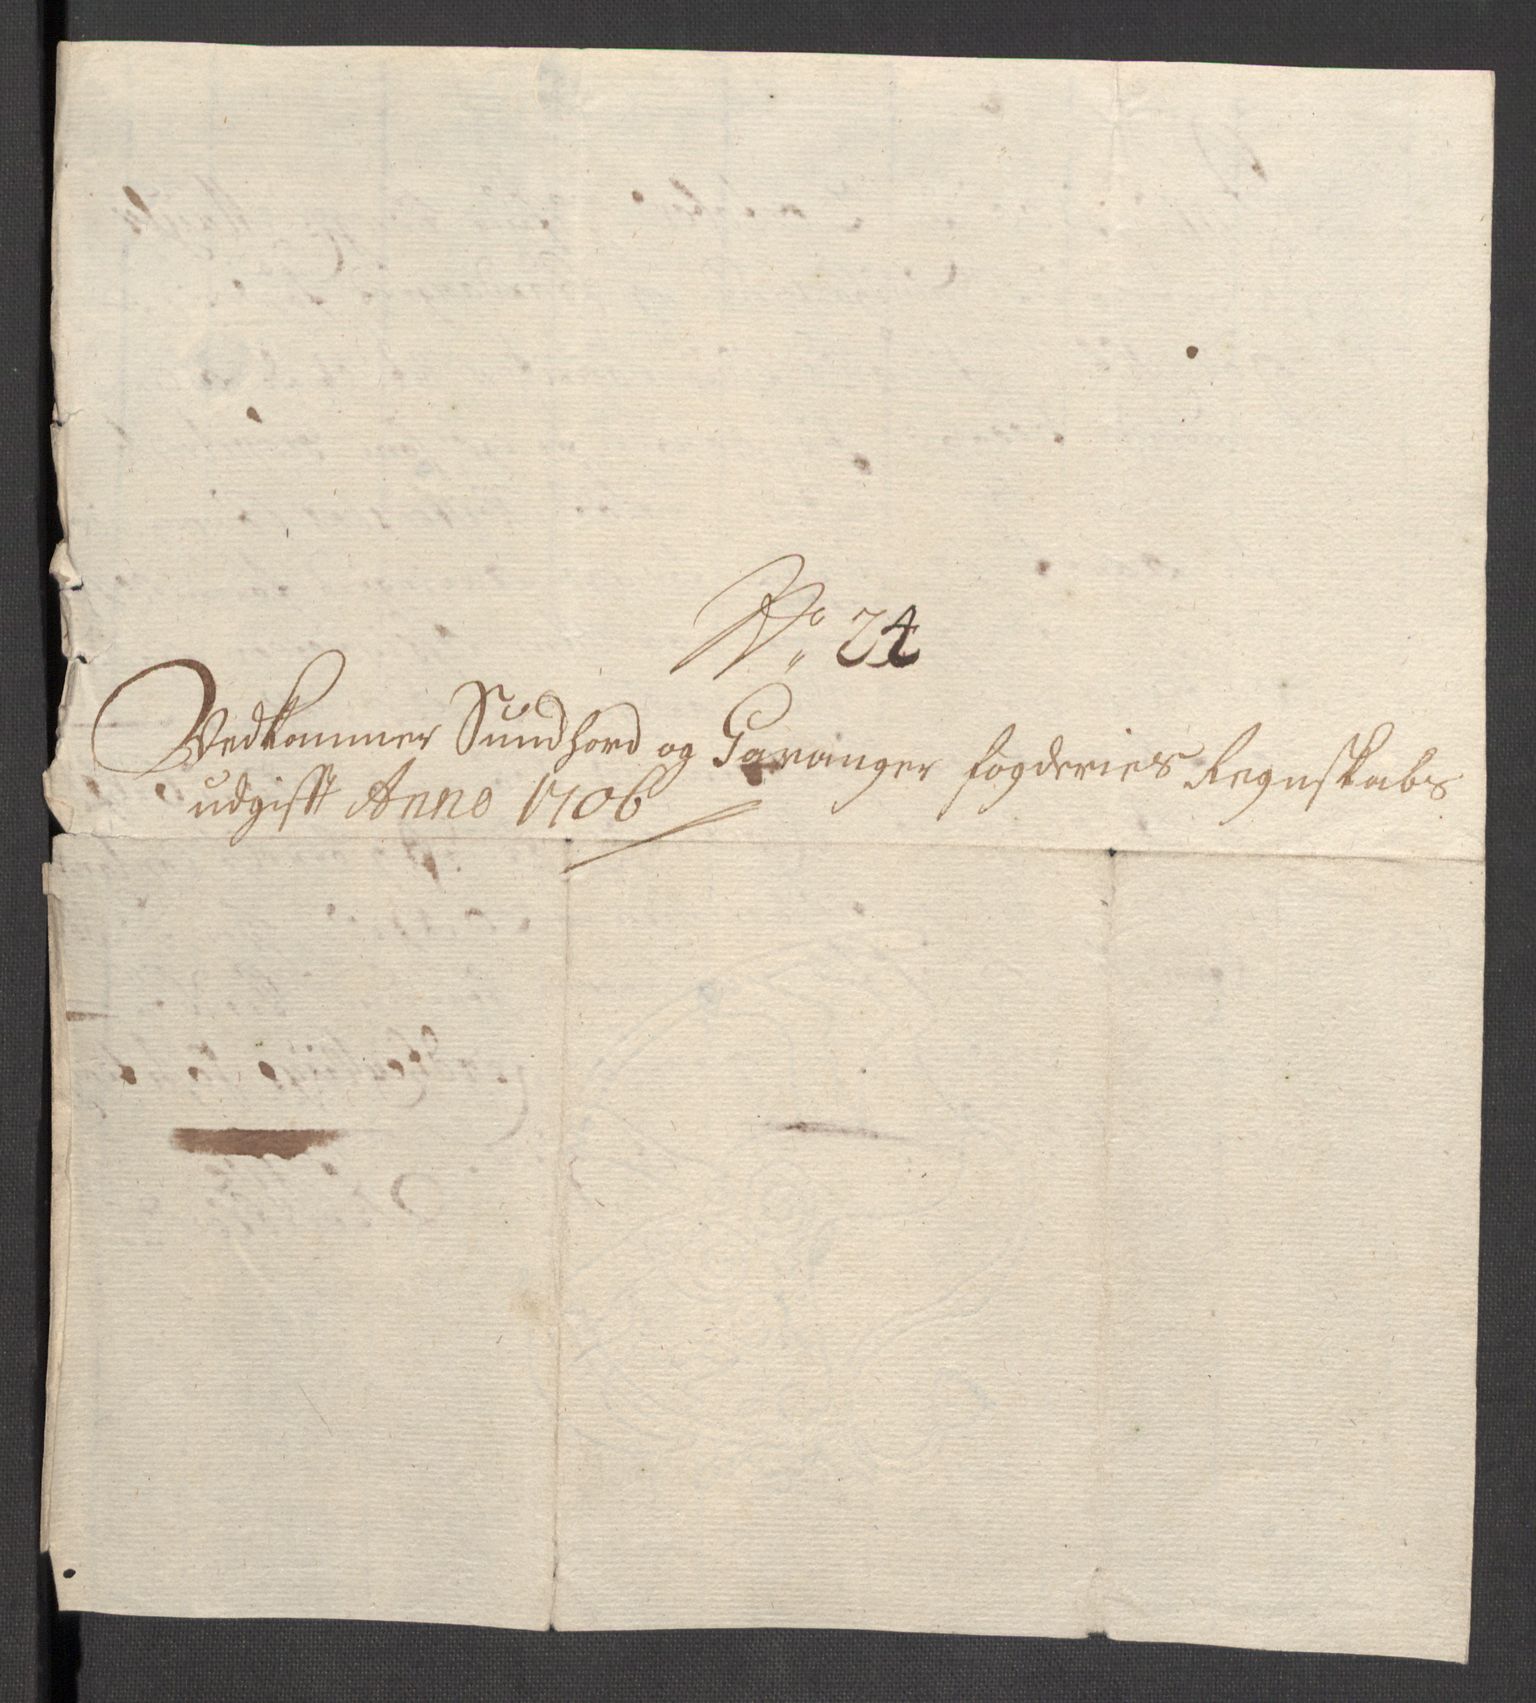 No. 24
Vedkommer Sundhord og Havanger fogderies Regnskabs
udgifft Anno 1706